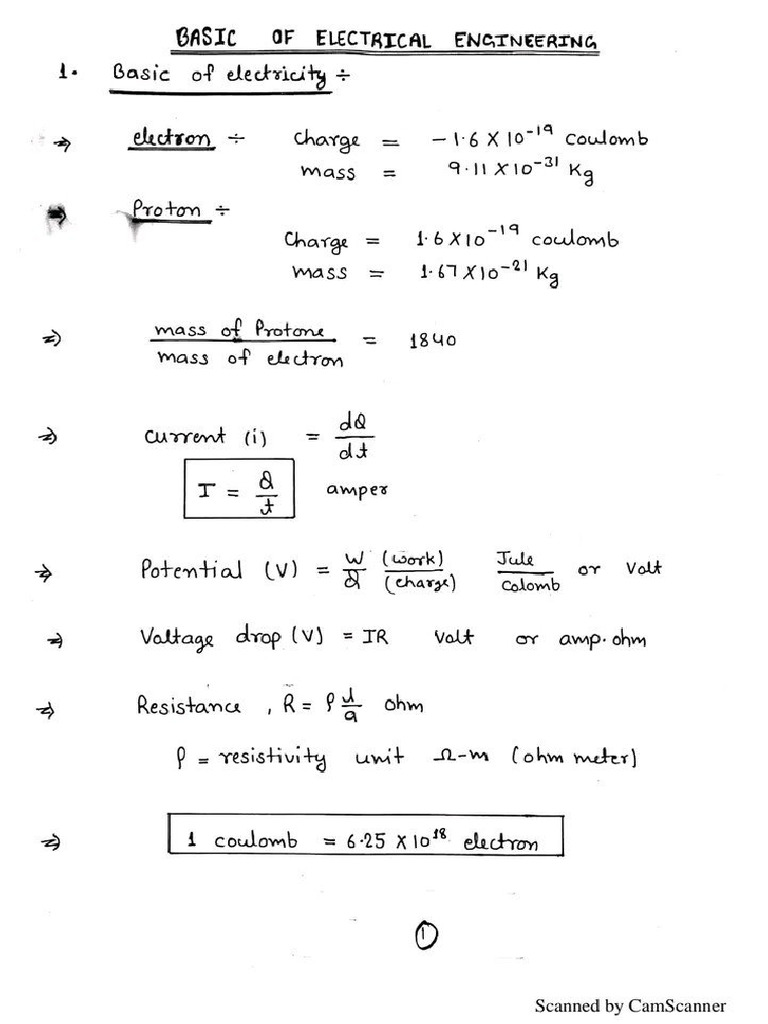 BASIC OF ELECTRICAL ENGINEERING
1. Basic of electricity ÷
⇒ electron ÷ Charge = -1.6 X 10⁻¹⁹ coulomb
mass = 9.11 X 10⁻³¹ Kg
⇒ Proton ÷
Charge = 1.6 X 10⁻¹⁹ coulomb
mass = 1.67 X 10⁻²¹ Kg
⇒ mass of Protone / mass of electron = 1840
⇒ current (i) = dQ/dt
I = Q/t amper
⇒ Potential (V) = W/Q (work)/(charge) Jule/Colomb or Volt
⇒ Voltage drop (V) = IR Volt or amp. ohm
⇒ Resistance, R = ρ l/a ohm
ρ = resistivity unit Ω-m (ohm meter)
⇒ 1 coulomb = 6.25 X 10¹⁸ electron
1
Scanned by CamScanner